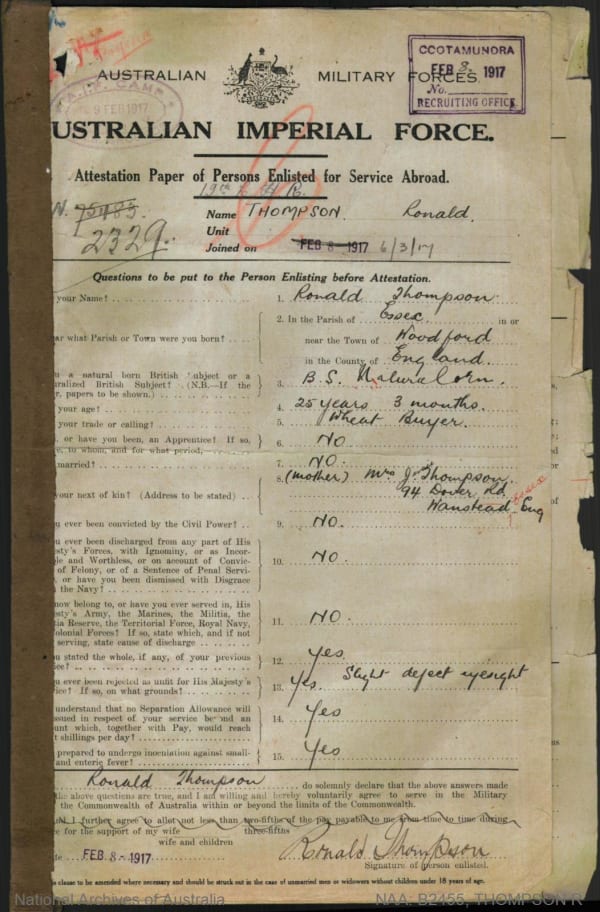 AUSTRALIAN MILITARY FORCES.
COOTAMUNDRA
FEB 8 1917
No.
RECRUITING OFFICE
A.I.F. CAMP
9 FEB 1917
USTRALIAN IMPERIAL FORCE.
Attestation Paper of Persons Enlisted for Service Abroad.
N. 75483.
2329.
Name THOMPSON. Ronald.
Unit
Joined on FEB 8-1917 6/3/17
Questions to be put to the Person Enlisting before Attestation.
your Name?
1. Ronald Thompson
ar what Parish or Town were you born?
2. In the Parish of Essex in or
near the Town of Woodford
in the County of England.
u a natural born British Subject or a
uralized British Subject? (N.B.—If the
r, papers to be shown.)
3. B.S. Natural Born.
your age?
4. 25 years 3 months.
your trade or calling?
5. Wheat Buyer.
, or have you been, an Apprentice? If so,
e, to whom, and for what period,
6. NO
married?
7. NO.
your next of kin? (Address to be stated)
8. (mother) Mrs J. Thompson.
94 Dover Rd
Wanstead Essex Eng
u ever been convicted by the Civil Power?
9. NO.
u ever been discharged from any part of His
esty's Forces, with Ignominy, or as Incor-
le and Worthless, or on account of Convic-
of Felony, or of a Sentence of Penal Servi-
, or have you been dismissed with Disgrace
the Navy?
10. NO.
now belong to, or have you ever served in, His
esty's Army, the Marines, the Militia, the
tia Reserve, the Territorial Force, Royal Navy,
olonial Forces? If so, state which, and if not
serving, state cause of discharge
11. NO.
u stated the whole, if any, of your previous
ice?
12. Yes.
u ever been rejected as unfit for His Majesty's
ice? If so, on what grounds?
13. Yes. Slight defect eyesight
understand that no Separation Allowance will
ssued in respect of your service beyond an
unt which, together with Pay, would reach
t shillings per day?
14. Yes
prepared to undergo inoculation against small-
and enteric fever?
15. Yes
Ronald Thompson do solemnly declare that the above answers made
the above questions are true, and I am willing and hereby voluntarily agree to serve in the Military
the Commonwealth of Australia within or beyond the limits of the Commonwealth.
I further agree to allot not less than two-fifths of the pay payable to me from time to time during
ce for the support of my wife three-fifths
wife and children
te FEB 8-1917 Ronald Thompson
Signature of person enlisted.
s clause to be amended where necessary and should be struck out in the case of unmarried men or widowers without children under 18 years of age.
National Archives of Australia NAA: B2455, THOMPSON R